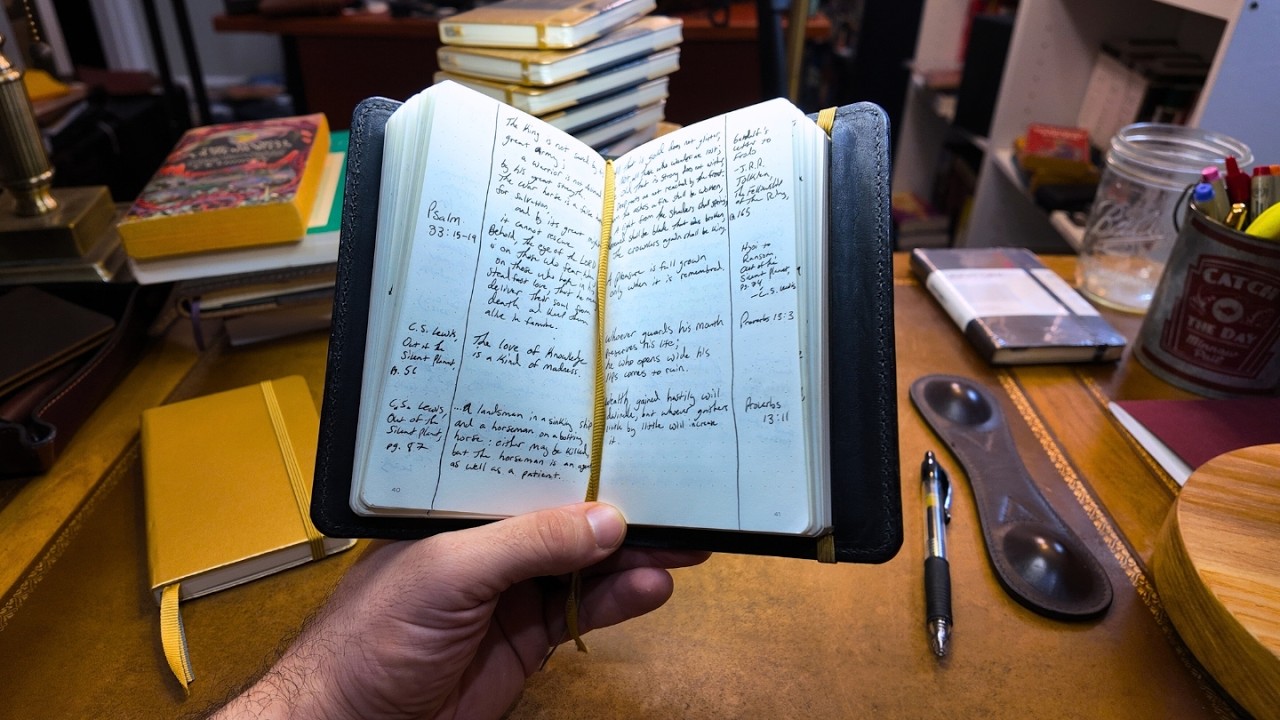 The King is not saved by
great army;
a warrior is not
by his great strength.
The war horse is a false
for salvation,
and by its great might
it cannot rescue.
Behold, the eye of the LORD
is on those who fear him,
on those who hope in
steadfast love, that he may
deliver their soul from
death and keep them
alive in famine.
Psalm
33:15-19
C.S. Lewis,
Out of the
Silent Planet,
P. 56
The love of knowledge
is a kind of madness.
C.S. Lewis,
Out of the
Silent Planet,
pg. 87
...a landsman in a sinking ship
and a horseman on a bolting
horse: either may be killed,
but the horseman is an agent
as well as a patient....
40
is gold does not glitter,
all who wander are lost;
that is strong does not wither,
are not reached by the frost.
the ashes a fire shall be woken,
light from the shadows shall spring;
shall be blade that was broken,
the crownless again shall be king.
Gandalf's
Letter to
Frodo
-J.R.R.
Tolkien
The Fellowship
of the Ring,
P. 165
A pleasure is full grown
only when it is remembered.
Hyoi to
Ransom
Out of the
Silent Planet,
Pg. 74
-C.S. Lewis
Whoever guards his mouth
preserves his life;
he who opens wide his
lips comes to ruin.
Proverbs 13:3
Wealth gained hastily will
dwindle, but whoever gathers
little by little will increase
it.
Proverbs
13:11
41
CATCH
THE DAY